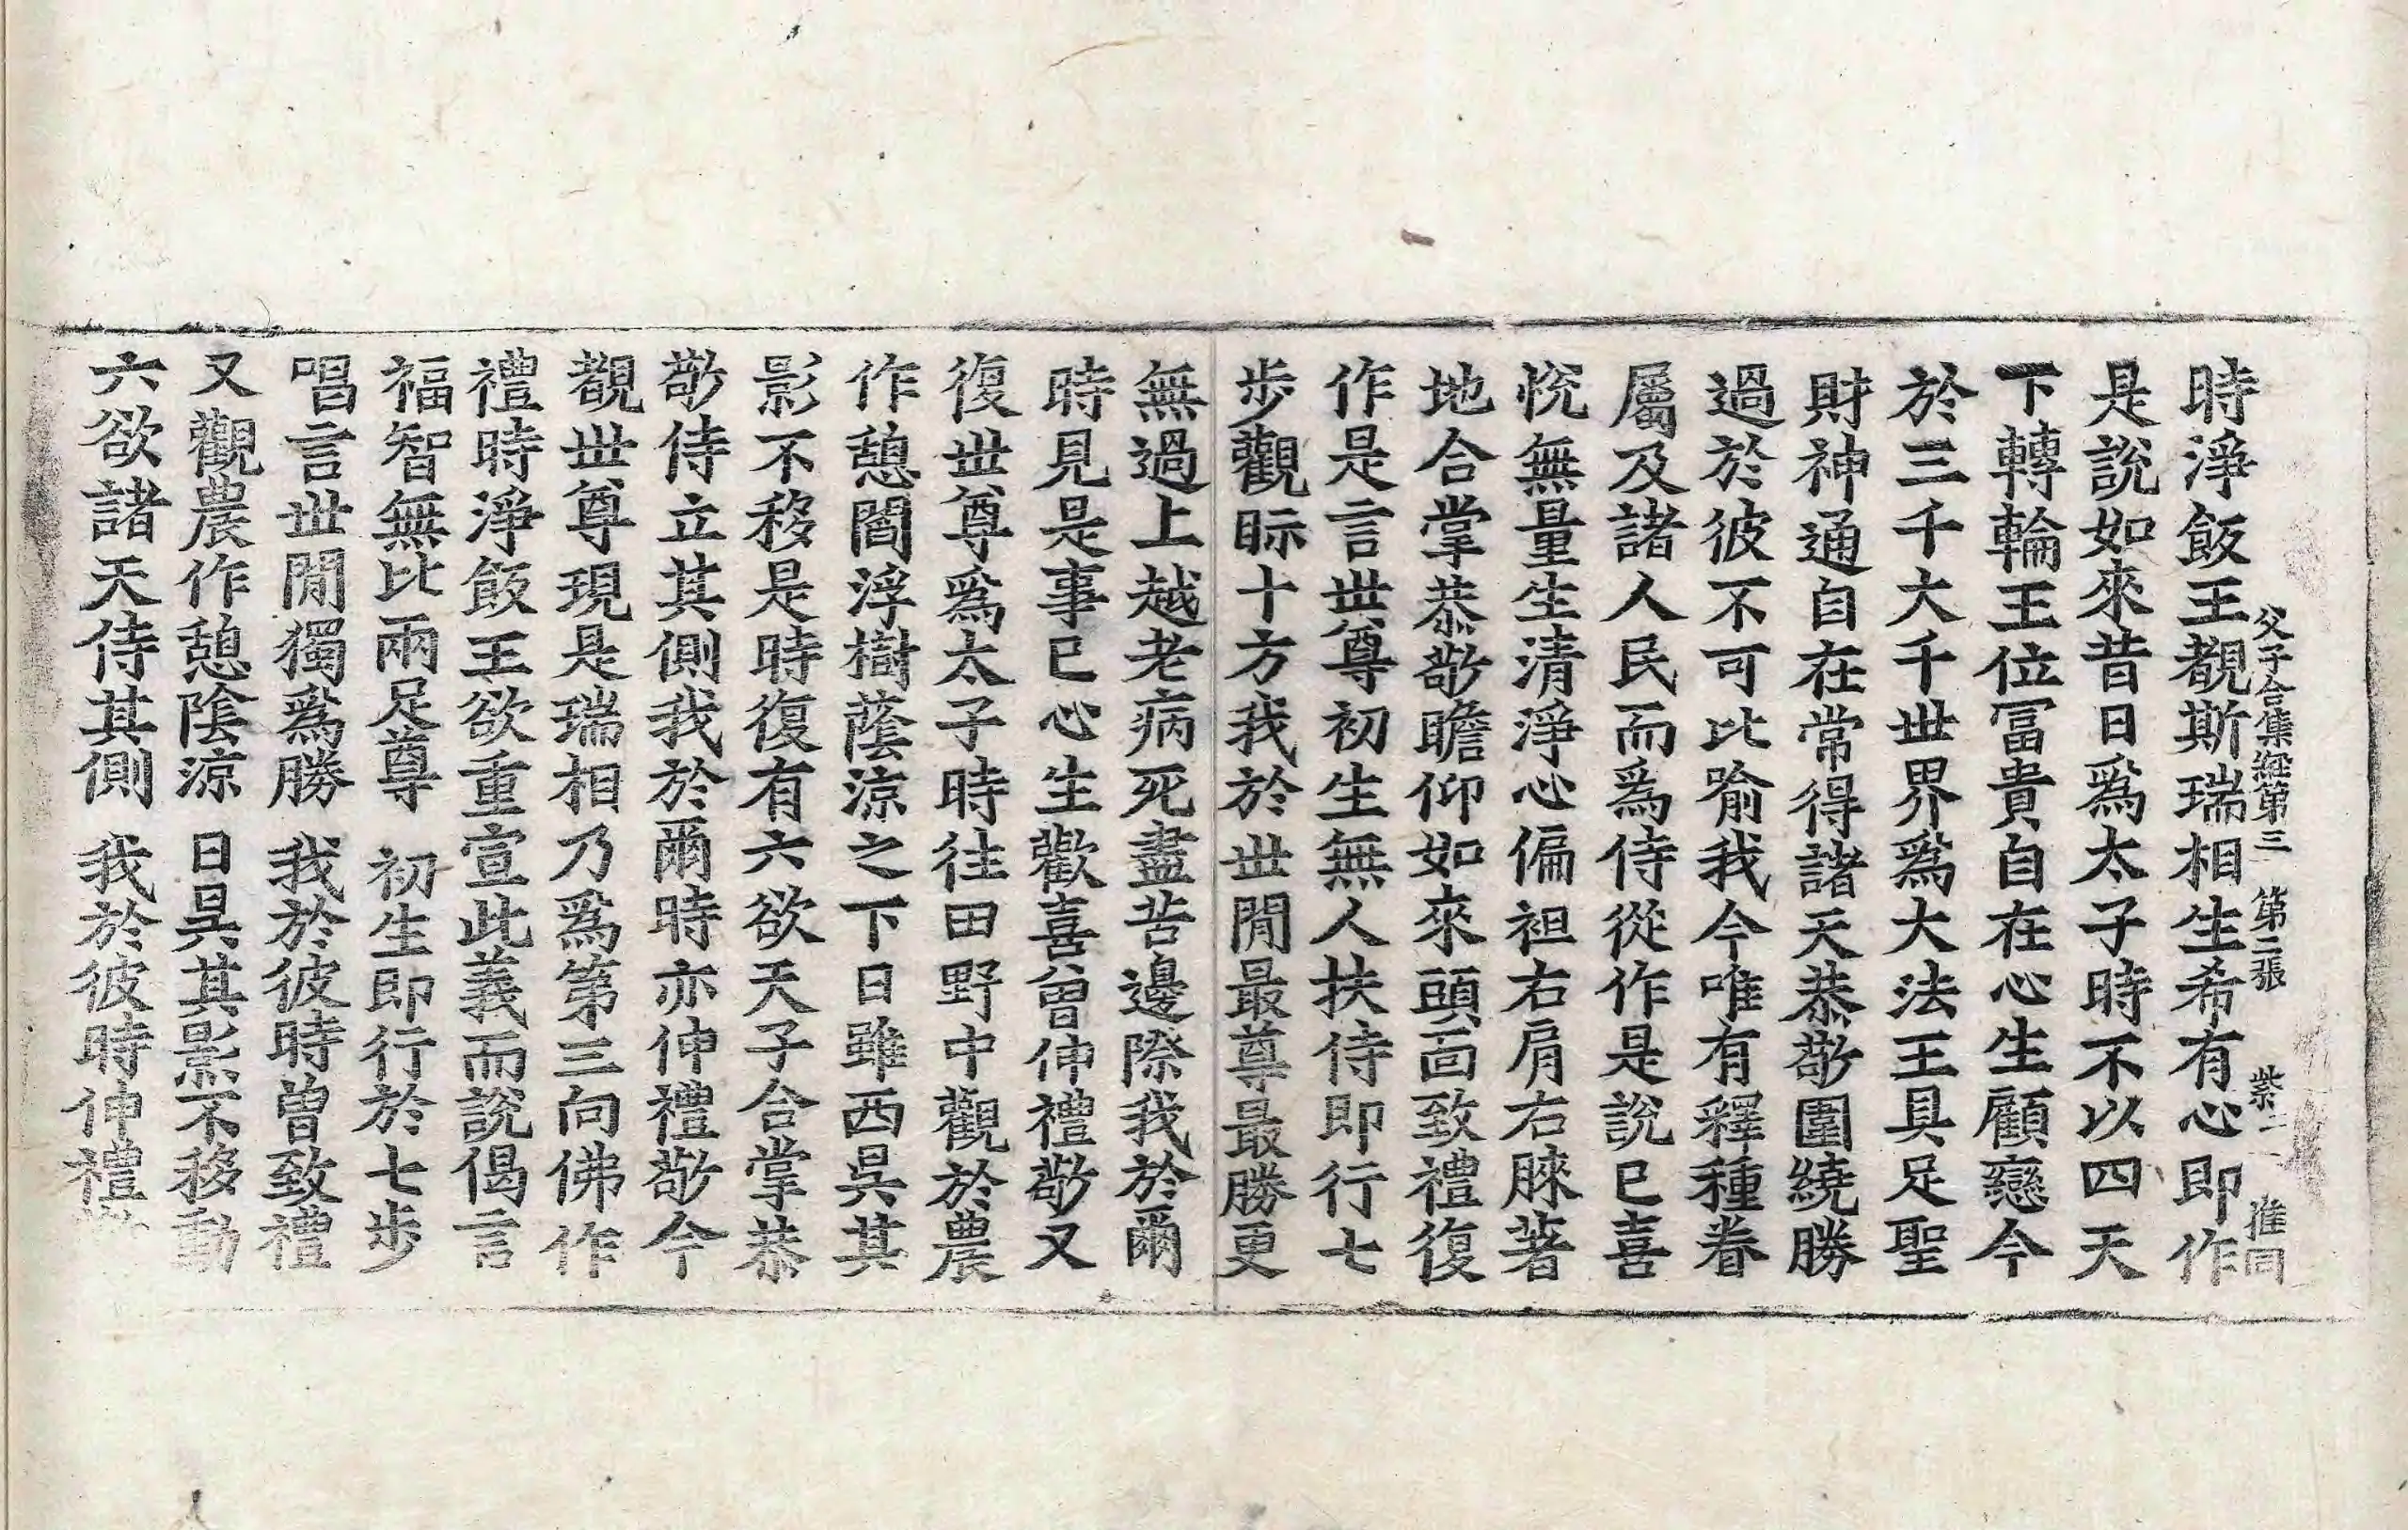 父子合集經第三 第二張 紫二 惟同
時淨飯王覩斯瑞相生希有心即作
是說如來昔日爲太子時不以四天
下轉輪王位冨貴自在心生顧戀今
於三千大千世界爲大法王具足聖
財神通自在常得諸天恭敬圍繞勝
過於彼不可比喻我今唯有釋種眷
屬及諸人民而爲侍從作是說已喜
悅無量生清淨心偏袒右肩右膝著
地合掌恭敬瞻仰如來頭面致禮復
作是言世尊初生無人扶侍即行七
步觀眎十方我於世閒最尊最勝更
無過上越老病死盡苦邊際我於爾
時見是事已心生歡喜曾伸禮敬又
復世尊爲太子時往田野中觀於農
作憩閻浮樹蔭涼之下日雖西昃其
影不移是時復有六欲天子合掌恭
敬侍立其側我於爾時亦伸禮敬今
覩世尊現是瑞相乃爲第三向佛作
禮時淨飯王欲重宣此義而說偈言
福智無比兩足尊 初生即行於七步
唱言世閒獨爲勝 我於彼時曾致禮
又觀農作憩陰涼 日昃其影不移動
六欲諸天侍其側 我於彼時伸禮